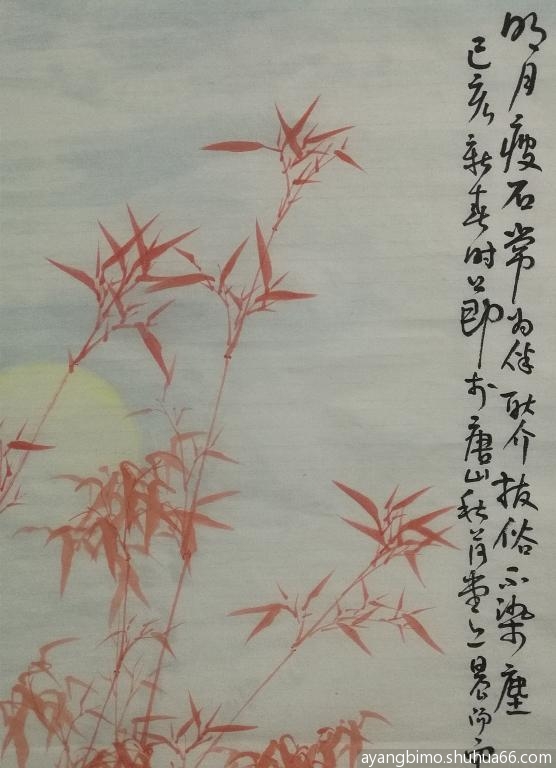 明月瘦石常为伴耿介拔俗不染尘
己亥新春时节于唐山秋肖堂上晨
ayangbimo.shuhua66.com